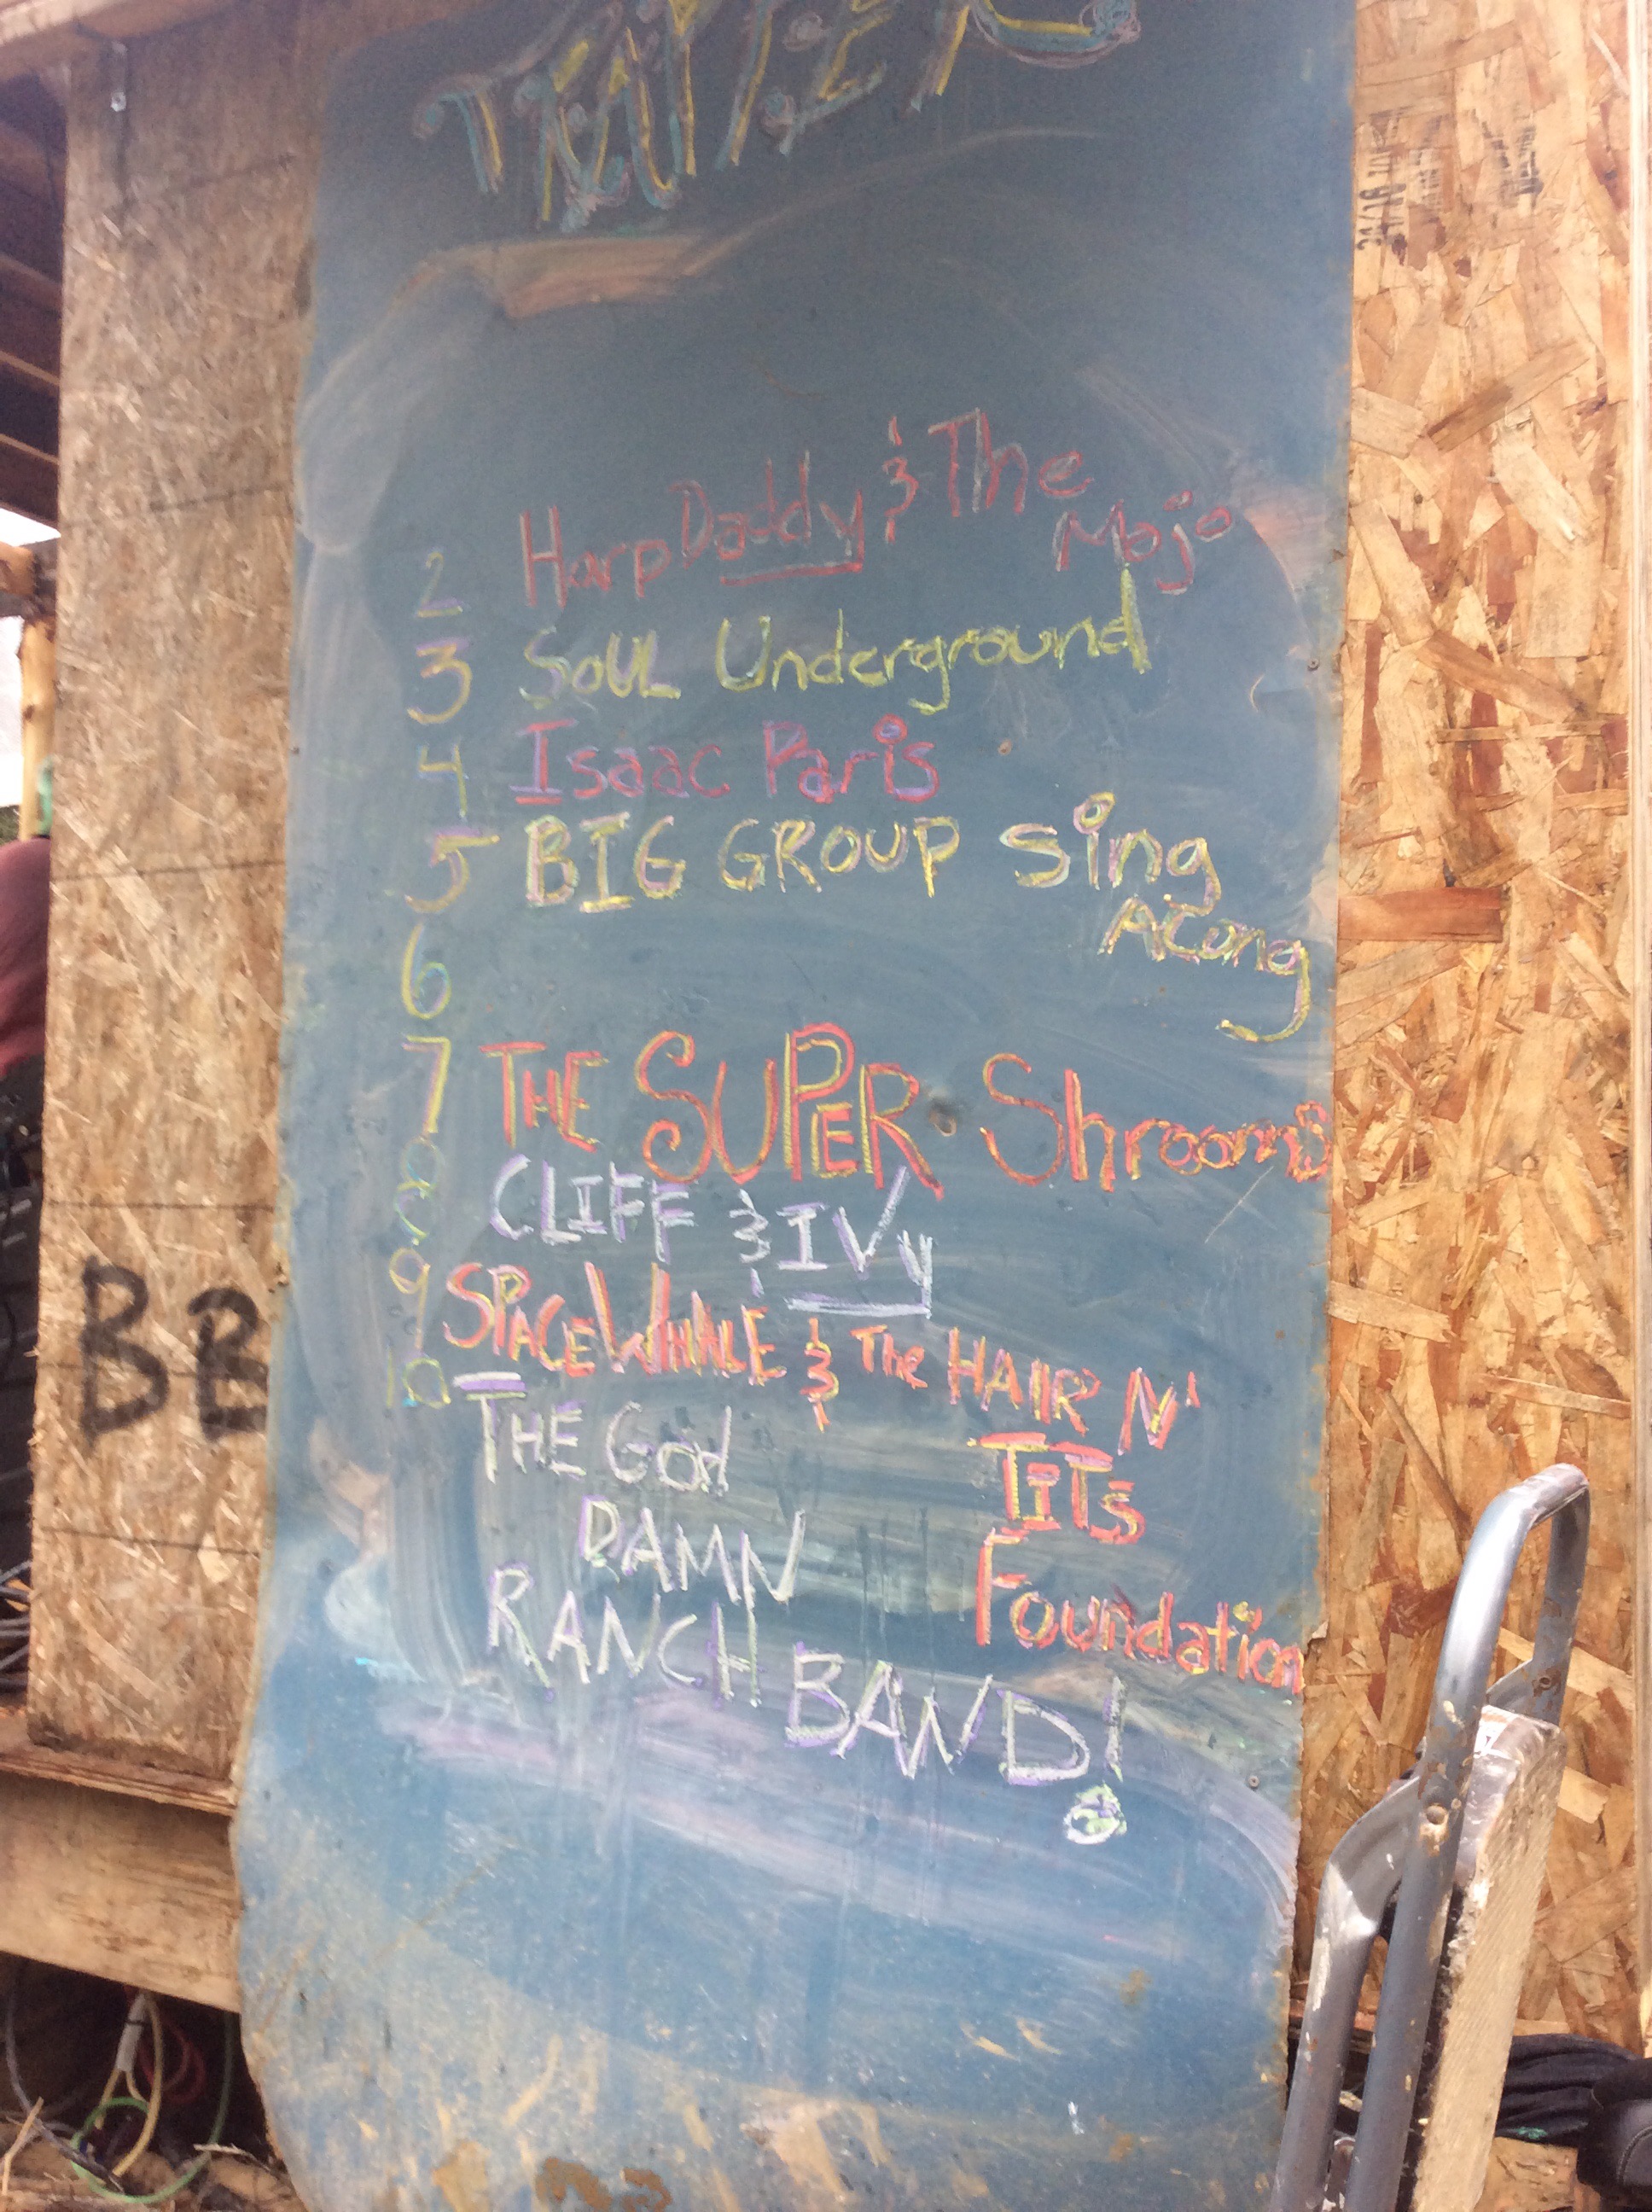 2 Harp Daddy & The
Mojo
3 SOUL Underground
4 Isaac Paris
5 BIG GROUP Sing
ALong
6
7 THE SUPER Shrooms
8 CLIFF & IVy
9 SPACE WHALE & The HAIR N'
TiTs
Foundation
10 THE God
DAMN
RANCH BAND!
BB